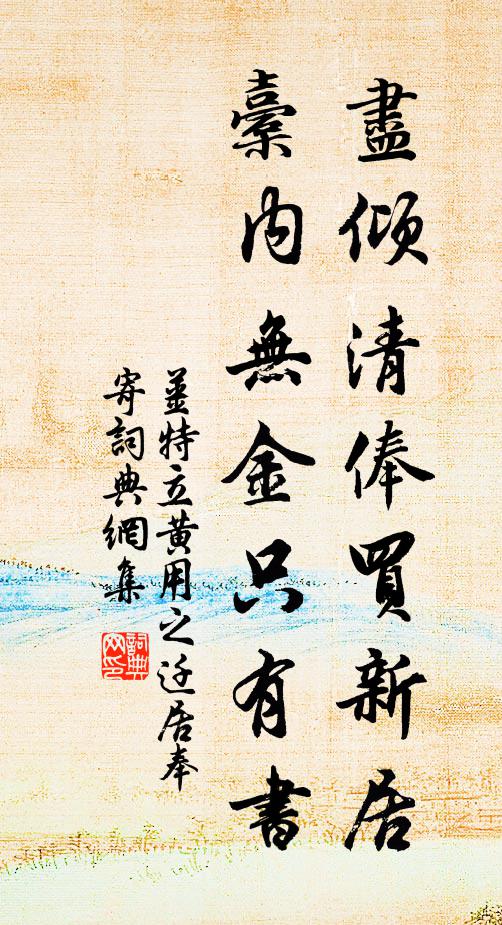 盡傾清俸買新居
橐內無金只有書
姜特立黃用之迁居奉
寄詞典網集
詞典
网印